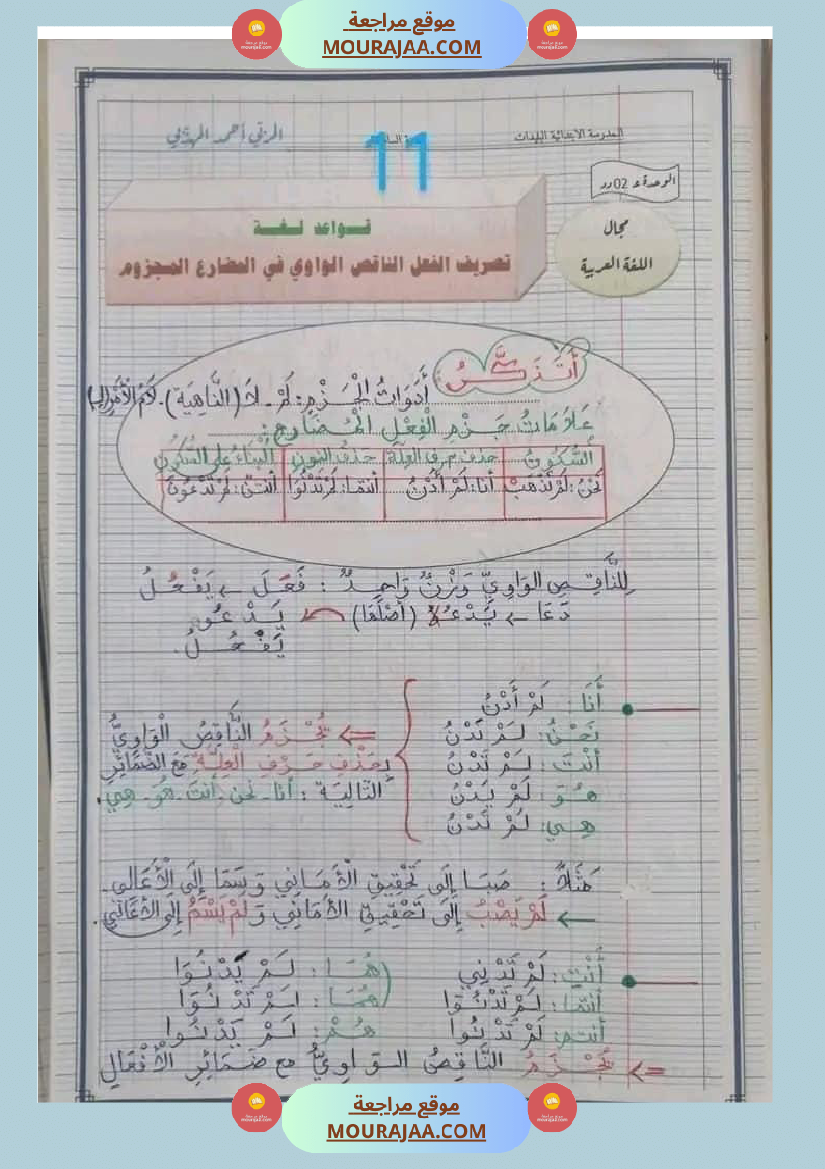 موقع مراجعة
MOURAJAA.COM
المدرسة الابتدائية
11
المربي أحمد
الوحدة 02
مجال
اللغة العربية
قواعد لغة
تصريف الفعل الناقص الواوي في المضارع المجزوم
أَتَذَكَّرُ
أَدَوَاتُ الْجَزْمِ: لَمْ ـ لَا (النَّاهِيَة) ـ لَامُ الْأَمْرِ (لِـ)
عَلَامَاتُ جَزْمِ الْفِعْلِ الْمُضَارِعِ:
السُّكُونُ حذف حرف العلّة حذف النون الْبِنَاءُ عَلَى السُّكُونِ
نَحْنُ: لَمْ نَذْهَبْ أنَا: لَمْ أَدْنُ أنتما: لَمْ تَدْنُوَا أنتنّ: لَمْ تَدْعُونَ
لِلنَّاقِصِ الوَاوِيِّ وَزْنٌ وَاحِدٌ : فَعَلَ ← يَفْعُلُ
دَعَا ← يَدْعُو (أَصْلُهَا) يَدْعُوُ
يَفْعُلُ.
أَنَا : لَمْ أَدْنُ
نَحْنُ: لَمْ نَدْنُ
أَنْتَ: لَمْ تَدْنُ
هُوَ: لَمْ يَدْنُ
هِيَ: لَمْ تَدْنُ
⇐ يُجْزَمُ النَّاقِصُ الْوَاوِيُّ
بِحَذْفِ حَرْفِ الْعِلَّةِ مَعَ الضَّمَائِرِ
التَّالِيَة : أنَا ـ نحن ـ أنتَ ـ هُوَ ـ هِيَ.
مَثَلًا: صَبَا إِلَى تَحْقِيقِ الْأَمَانِي وَسَمَا إِلَى الْأَعَالِي.
← لَمْ يَصْبُ إِلَى تَحْقِيقِ الْأَمَانِي وَلَمْ يَسْمُ إِلَى الْأَعَالِي.
أَنْتِ: لَمْ تَدْنِي هُمَا: لَمْ يَدْنُوَا
أنتما: لَمْ تَدْنُوَا هُمَا: لَمْ تَدْنُوَا
أنتم: لَمْ تَدْنُوا هُمْ: لَمْ يَدْنُوا
⇐ يُجْزَمُ النَّاقِصُ الوَاوِيُّ مع ضَمَائِرِ الْأَفْعَالِ
موقع مراجعة
MOURAJAA.COM